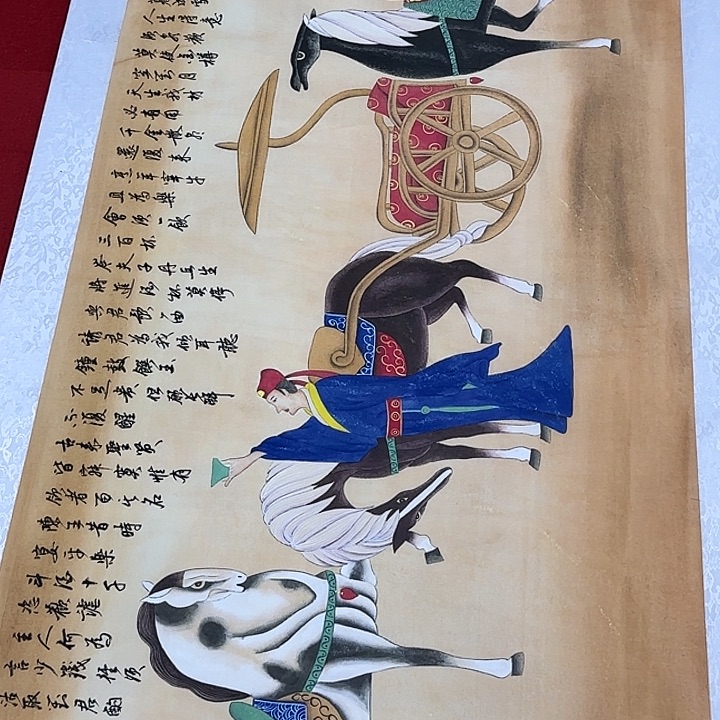 人生得意
須盡歡
莫使金樽
空對月
天生我材
必有用
千金散盡
還復來
烹羊宰牛
且為樂
會須一飲
三百杯
岑夫子丹丘生
將進酒杯莫停
與君歌一曲
請君為我傾耳聽
鐘鼓饌玉
不足貴但願長醉
不復醒
古來聖賢
皆寂寞惟有
飲者留其名
陳王昔時
宴平樂
斗酒十千
恣歡謔
主人何為
言少錢徑須
沽取對君酌